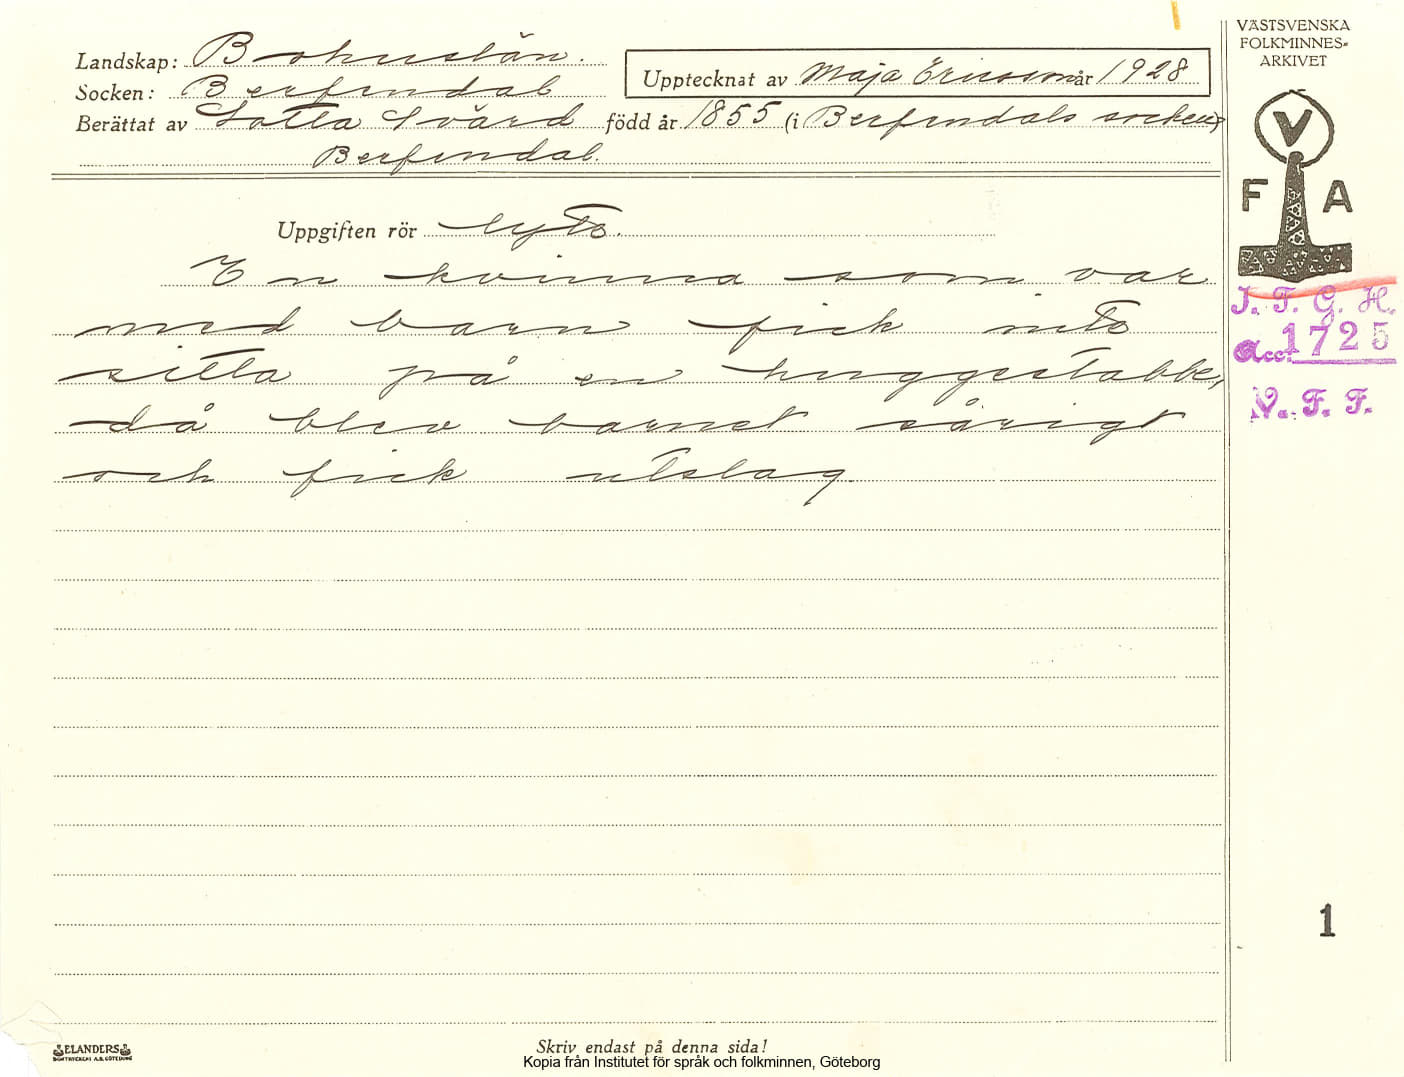 Landskap: Bohuslän.
Upptecknat av Maja Ericsson år 1928
Socken: Berfendal
Berättat av Lotta Svärd född år 1855 (i Berfendals socken)
Berfendal.
Uppgiften rör skrock.
En kvinna som var
med barn fick inte
sitta på en huggestabbe,
då blev barnet sårigt
och fick utslag.
VÄSTSVENSKA
FOLKMINNES-
ARKIVET
V
F A
I. F. G. H.
acc. 1725
V. F. F.
1
ELANDERS
BOKTRYCKERI A.B. GÖTEBORG
Skriv endast på denna sida!
Kopia från Institutet för språk och folkminnen, Göteborg